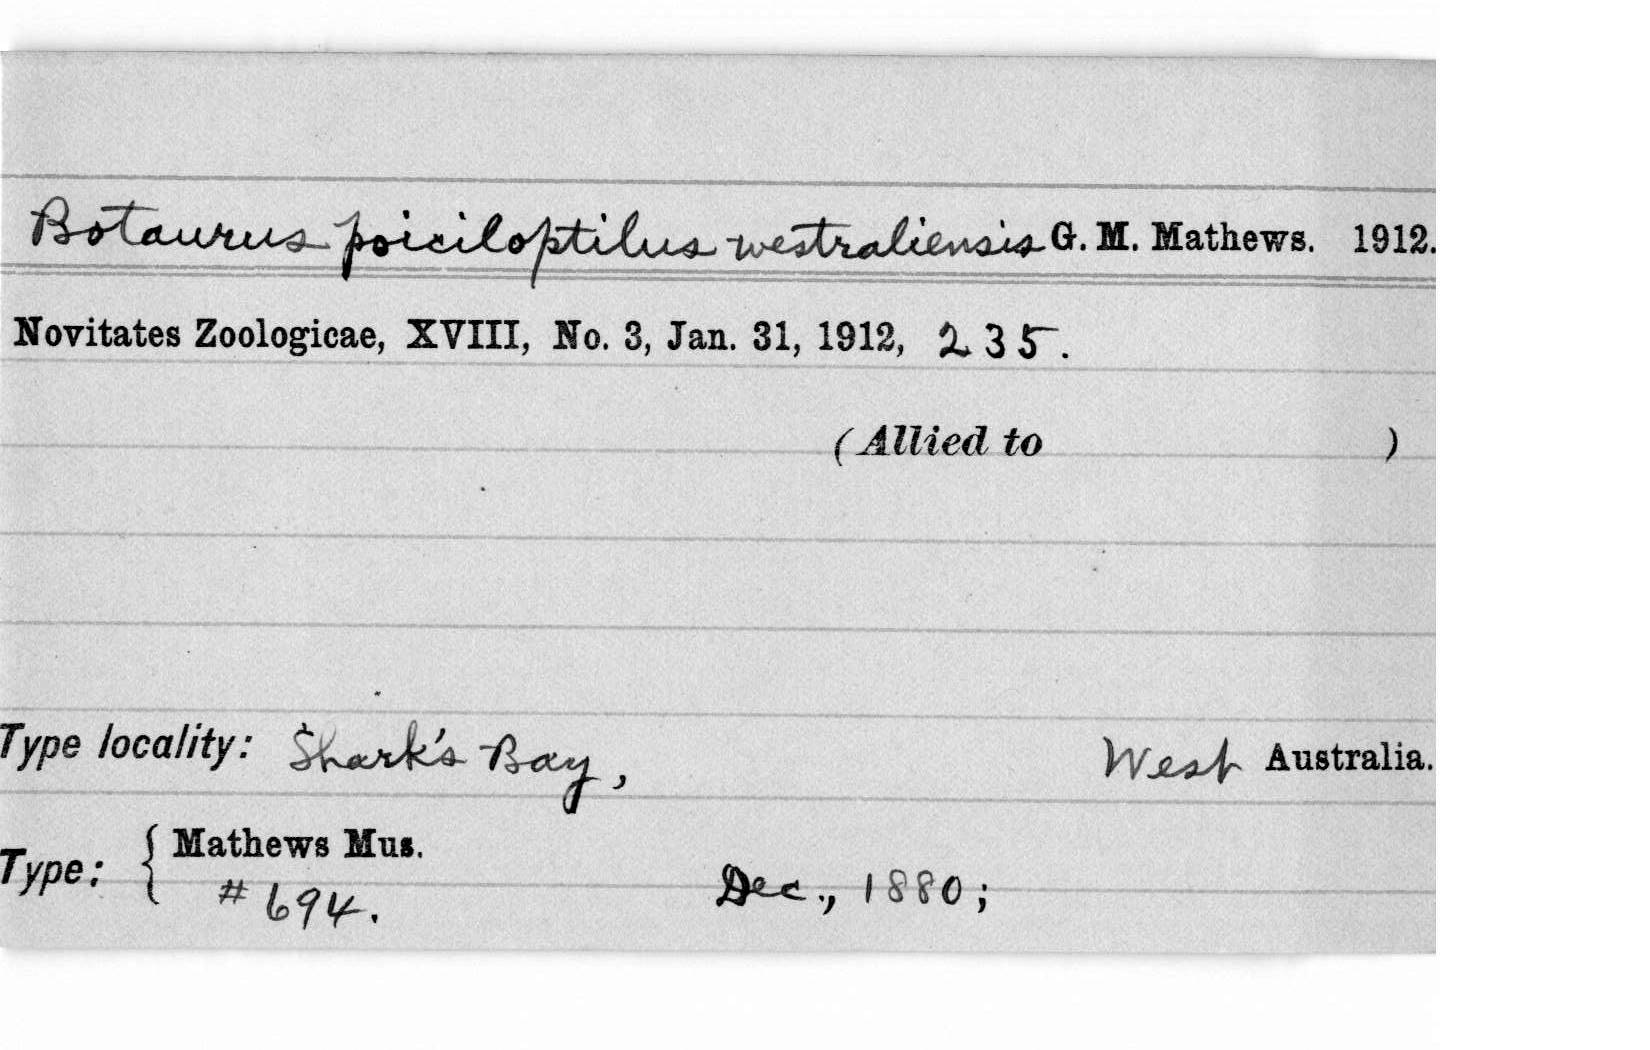 Botaurus poiciloptilus westraliensis G. M. Mathews. 1912.
Novitates Zoologicae, XVIII, No. 3, Jan. 31, 1912, 235.
(Allied to )
Type locality: Shark's Bay, West Australia.
Type: { Mathews Mus.
#694. Dec., 1880;